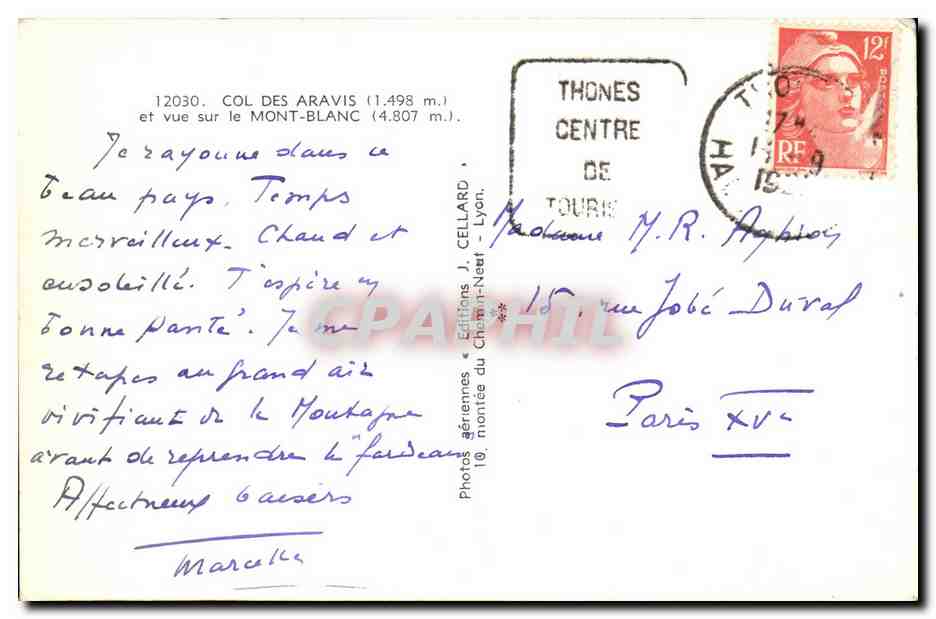 12030. COL DES ARAVIS (1.498 m.)
et vue sur le MONT-BLANC (4.807 m.).
Je rayonne dans ce
beau pays. Temps
merveilleux. Chaud et
ensoleillé. T'espère en
bonne santé. Je me
retapes au grand air
vivifiant de la Montagne
avant de reprendre le "fardeau"
Affectueux baisers
Marcelle
Photos aériennes « Editions J. CELLARD »
10, montée du Chemin-Neuf - Lyon.
THONES
CENTRE
DE
TOURIS
12f
RF
Madame M. R.
15, rue Jobé Duval
Paris XVe
CPAPHIL